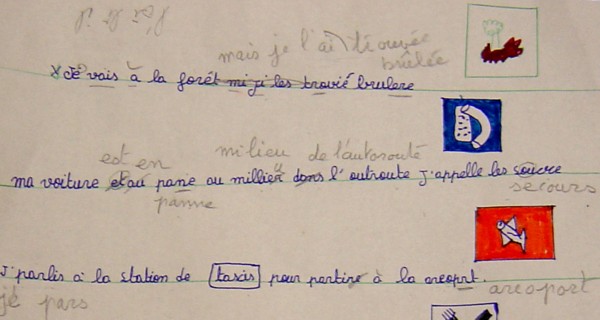 mais je l'ai trouvée
brûlée
Je vais à la forêt mi ji les trovié brulere
est en milieu de l'autorouté
ma voiture et au pane au millier dans l'outroute j'appelle les soucre
panne secours
J'parlis a la station de taxis pour partire à la areoprt.
je pars areoport